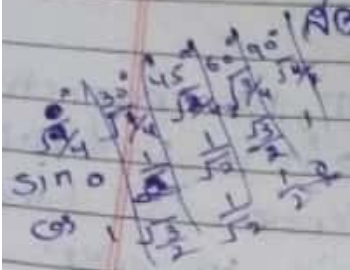 0° 30° 45° 60° 90°
√0/4 √1/4 √2/4 √3/4 √4/4
sin 0 1/2 1/√2 √3/2 1
cos 1 √3/2 1/√2 1/2 0